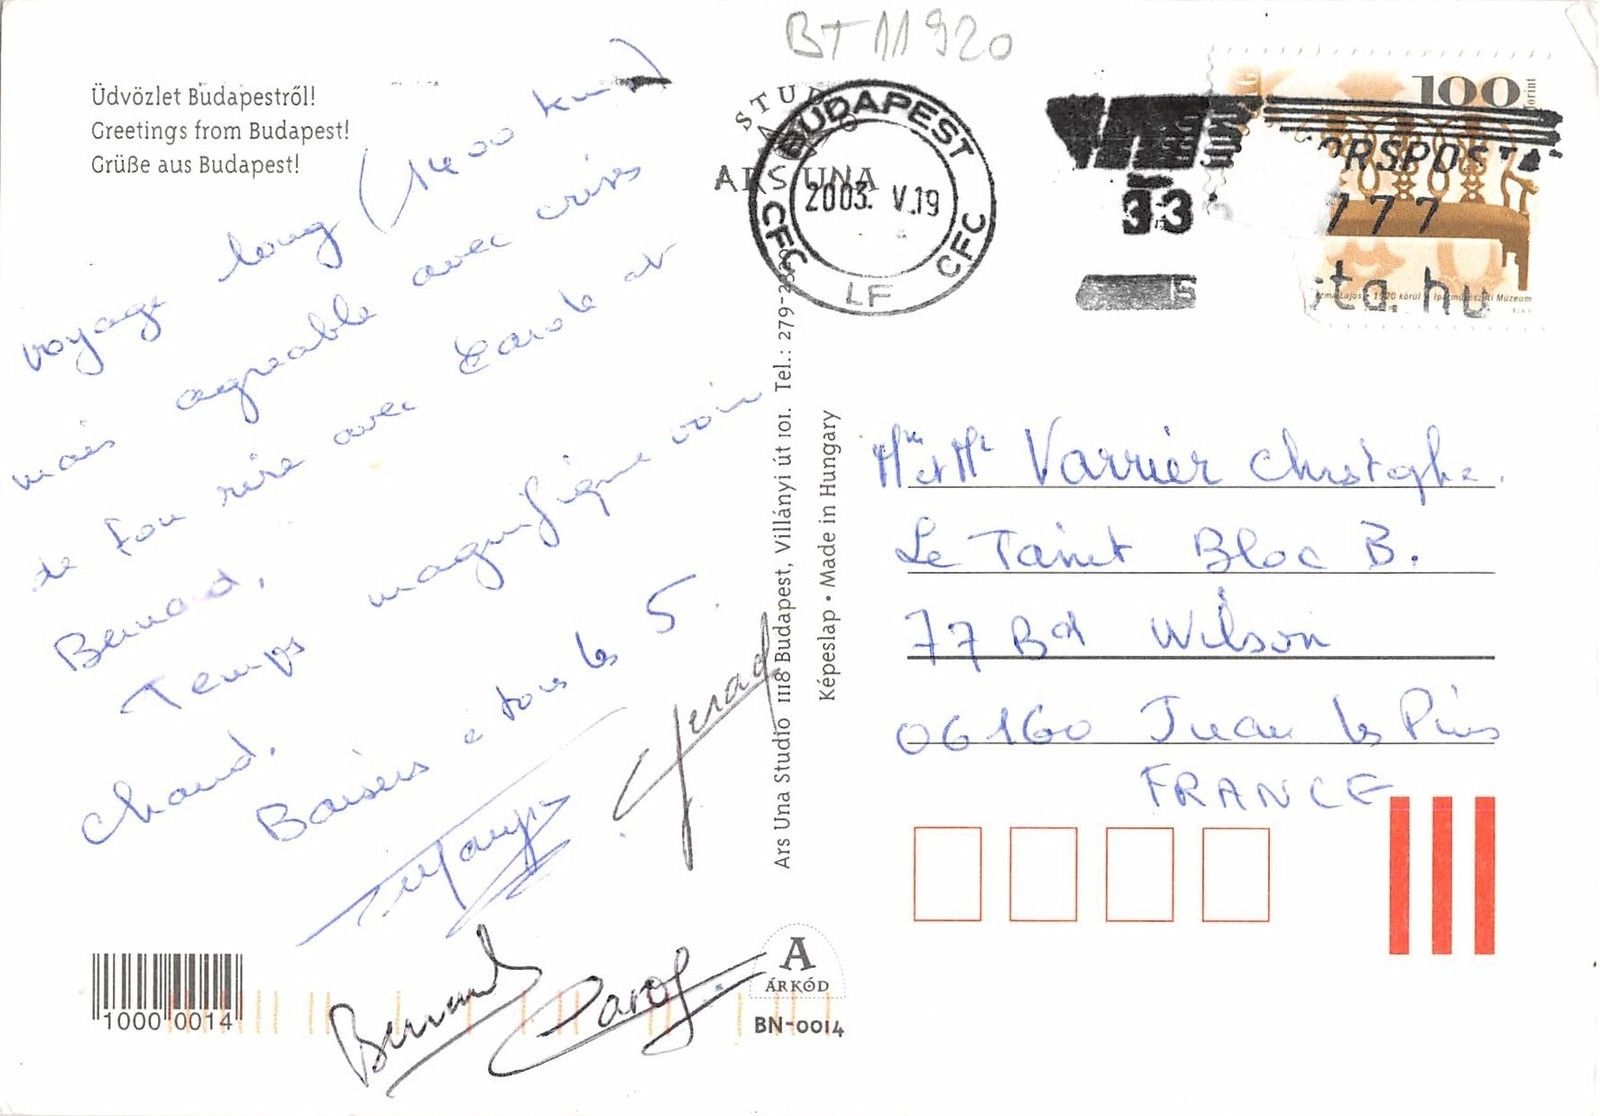 BT 11920
Üdvözlet Budapestről!
Greetings from Budapest!
Grüße aus Budapest!
voyage long (1400 km)
mais agréable avec crises
de fou rire avec Carole et
Bernard.
Temps magnifique voir
chaud.
Baisers à tous les 5.
Gérard
Bernard
Carole
1000 0014
STUDIO
ARS UNA
BUDAPEST
2003. V.19
CFC CFC
LF
33
777
ta.hu
100
Lajos • 1920 körül • Iparművészeti Múzeum
Ars Una Studio 1118 Budapest, Villányi út 101. Tel.: 279-
Képeslap • Made in Hungary
Mme et Mr Varrier Christophe.
Le Tanit Bloc B.
77 Bd Wilson
06160 Juan les Pins
FRANCE
A
ÁRKÓD
BN-0014